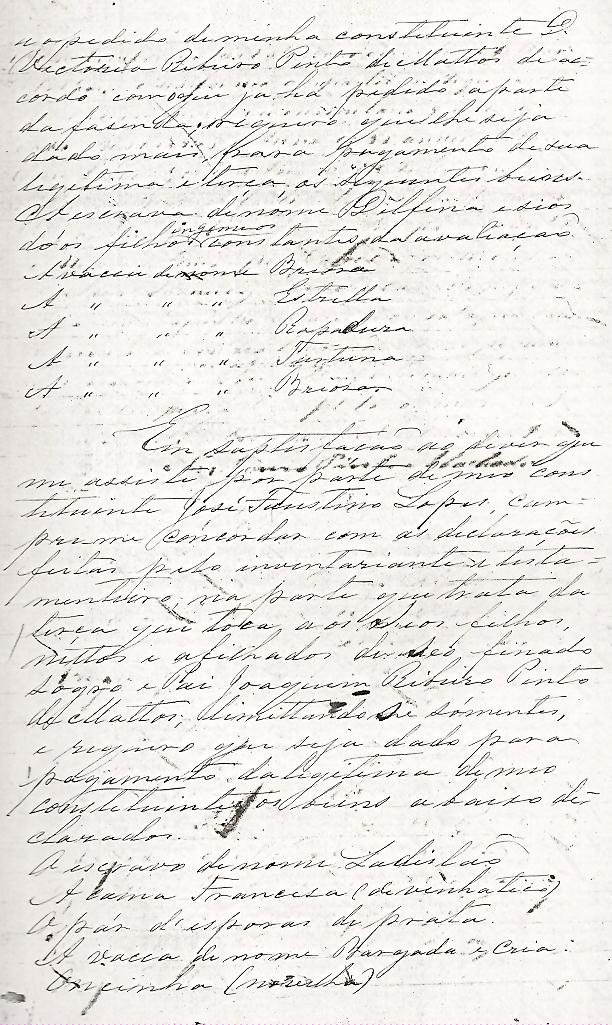 ao pedido de minha constituinte D.
Victoria Ribeiro Pinto de Mattos de ac=
cordo com o que ja ha pedido a parte
da fasenda, requeiro que lhe seja
dado mais para pagamento de sua
legitima e terça os seguintes bens.
A escrava de nome Delfina e seos
dóos filhos ingenuos constantes da avaliação
A vacca de nome Briosa
A " " " Estrella
A " " " Rapadura
A " " " Furtuna
A " " " Briosa
Em saptisfacão ao dever que
me assiste por parte de meo cons
tituinte José Faustino Lopes, cum=
pre me concordar com as declarações
feitas pelo inventariante e testa=
menteiro, na parte que trata da
terça que toca aos seos filhos,
nettos e afilhados de seo finado
sogro e Pai Joaquim Ribeiro Pinto
de Mattos; limittando se sómente,
e requeiro que seja dado para
pagamento da legitima de meo
constituinte os bens a baixo de=
clarados.
O escravo de nome Ladislão
A cama Francesa (de vinhatico)
O pár d'esporas de prata.
A vacca de nome Bargada e cria:
Oncinha (novilha)